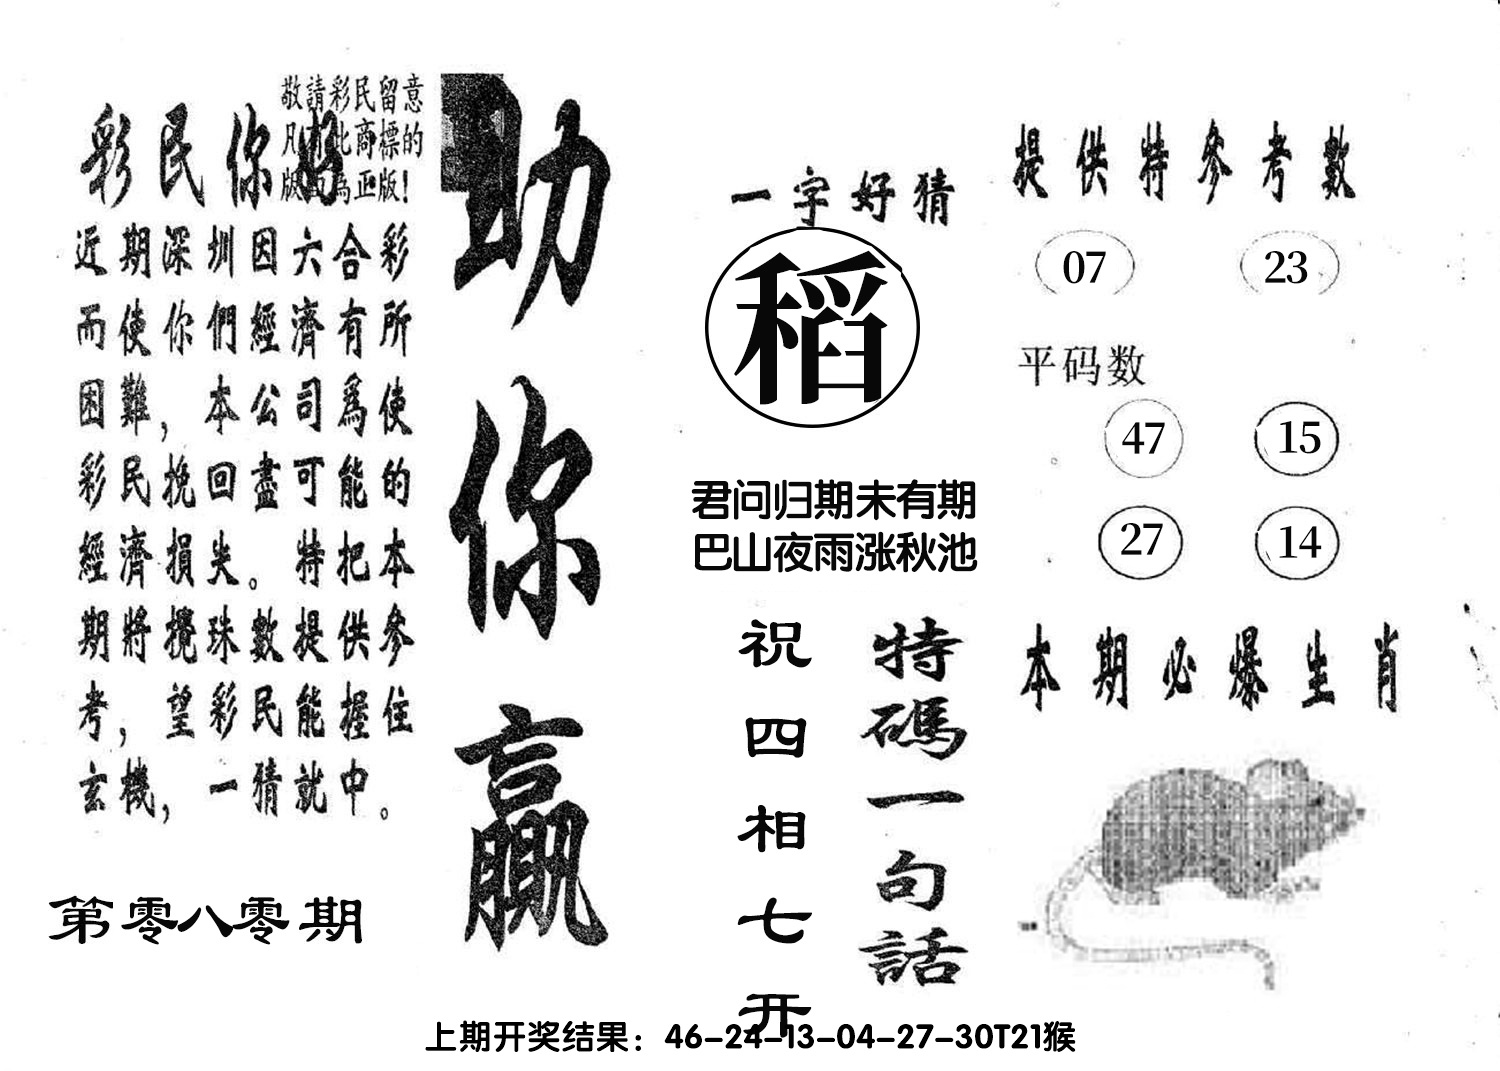 敬請彩民留意
凡有此商標的
版面為正版!
彩民你好
近期深圳因六合彩
而使你們經濟有所
困難，本公司爲使
彩民挽回盡可能的
經濟損失。特把本
期將攪珠數提供參
考，望彩民能握住
玄機，一猜就中。
第零八零期
助你贏
一字好猜
稻
君问归期未有期
巴山夜雨涨秋池
特碼一句話
祝四相七开
提供特参考數
07 23
平码数
47 15
27 14
本期必爆生肖
上期开奖结果：46-24-13-04-27-30T21猴